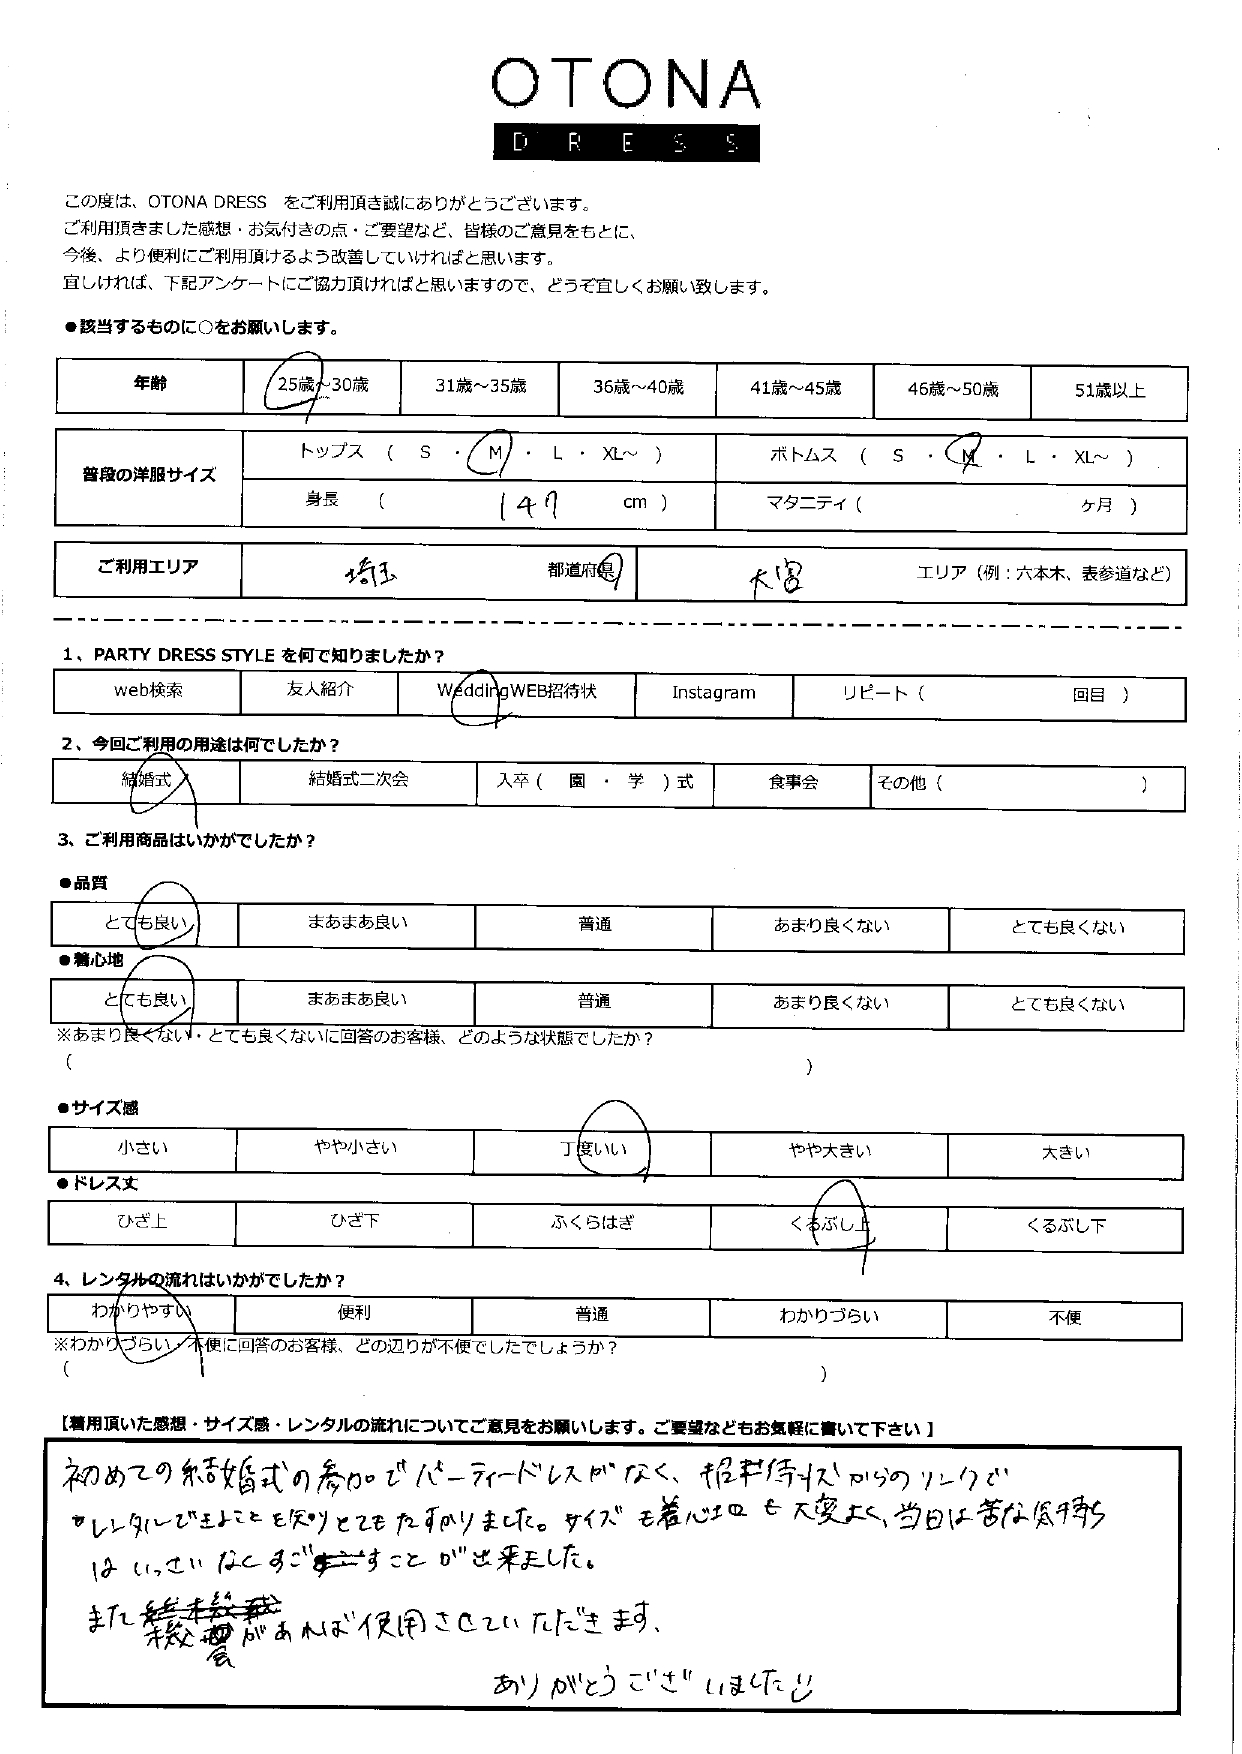 OTONA
DRESS
この度は、OTONA DRESS　をご利用頂き誠にありがとうございます。
ご利用頂きました感想・お気付きの点・ご要望など、皆様のご意見をもとに、
今後、より便利にご利用頂けるよう改善していければと思います。
宜しければ、下記アンケートにご協力頂ければと思いますので、どうぞ宜しくお願い致します。
●該当するものに○をお願いします。
年齢 25歳～30歳 31歳～35歳 36歳～40歳 41歳～45歳 46歳～50歳 51歳以上
普段の洋服サイズ トップス （ S ・ M ・ L ・ XL～ ） ボトムス （ S ・ M ・ L ・ XL～ ）
身長 （ 147 cm ） マタニティ（ ヶ月 ）
ご利用エリア 埼玉 都道府県 大宮 エリア（例：六本木、表参道など）
1、PARTY DRESS STYLE を何で知りましたか？
web検索 友人紹介 WeddingWEB招待状 Instagram リピート（ 回目 ）
2、今回ご利用の用途は何でしたか？
結婚式 結婚式二次会 入卒（ 園 ・ 学 ）式 食事会 その他（ ）
3、ご利用商品はいかがでしたか？
●品質
とても良い まあまあ良い 普通 あまり良くない とても良くない
●着心地
とても良い まあまあ良い 普通 あまり良くない とても良くない
※あまり良くない・とても良くないに回答のお客様、どのような状態でしたか？
（ ）
●サイズ感
小さい やや小さい 丁度いい やや大きい 大きい
●ドレス丈
ひざ上 ひざ下 ふくらはぎ くるぶし上 くるぶし下
4、レンタルの流れはいかがでしたか？
わかりやすい 便利 普通 わかりづらい 不便
※わかりづらい・不便に回答のお客様、どの辺りが不便でしたでしょうか？
（ ）
【着用頂いた感想・サイズ感・レンタルの流れについてご意見をお願いします。ご要望などもお気軽に書いて下さい】
初めての結婚式の参加でパーティードレスがなく、招待状からのリンクで
レンタルできることを知りとてもたすかりました。サイズも着心地も大変よく、当日は苦な気持ち
はいっさいなくすごすことが出来ました。
また機会があれば使用させていただきます。
ありがとうございました